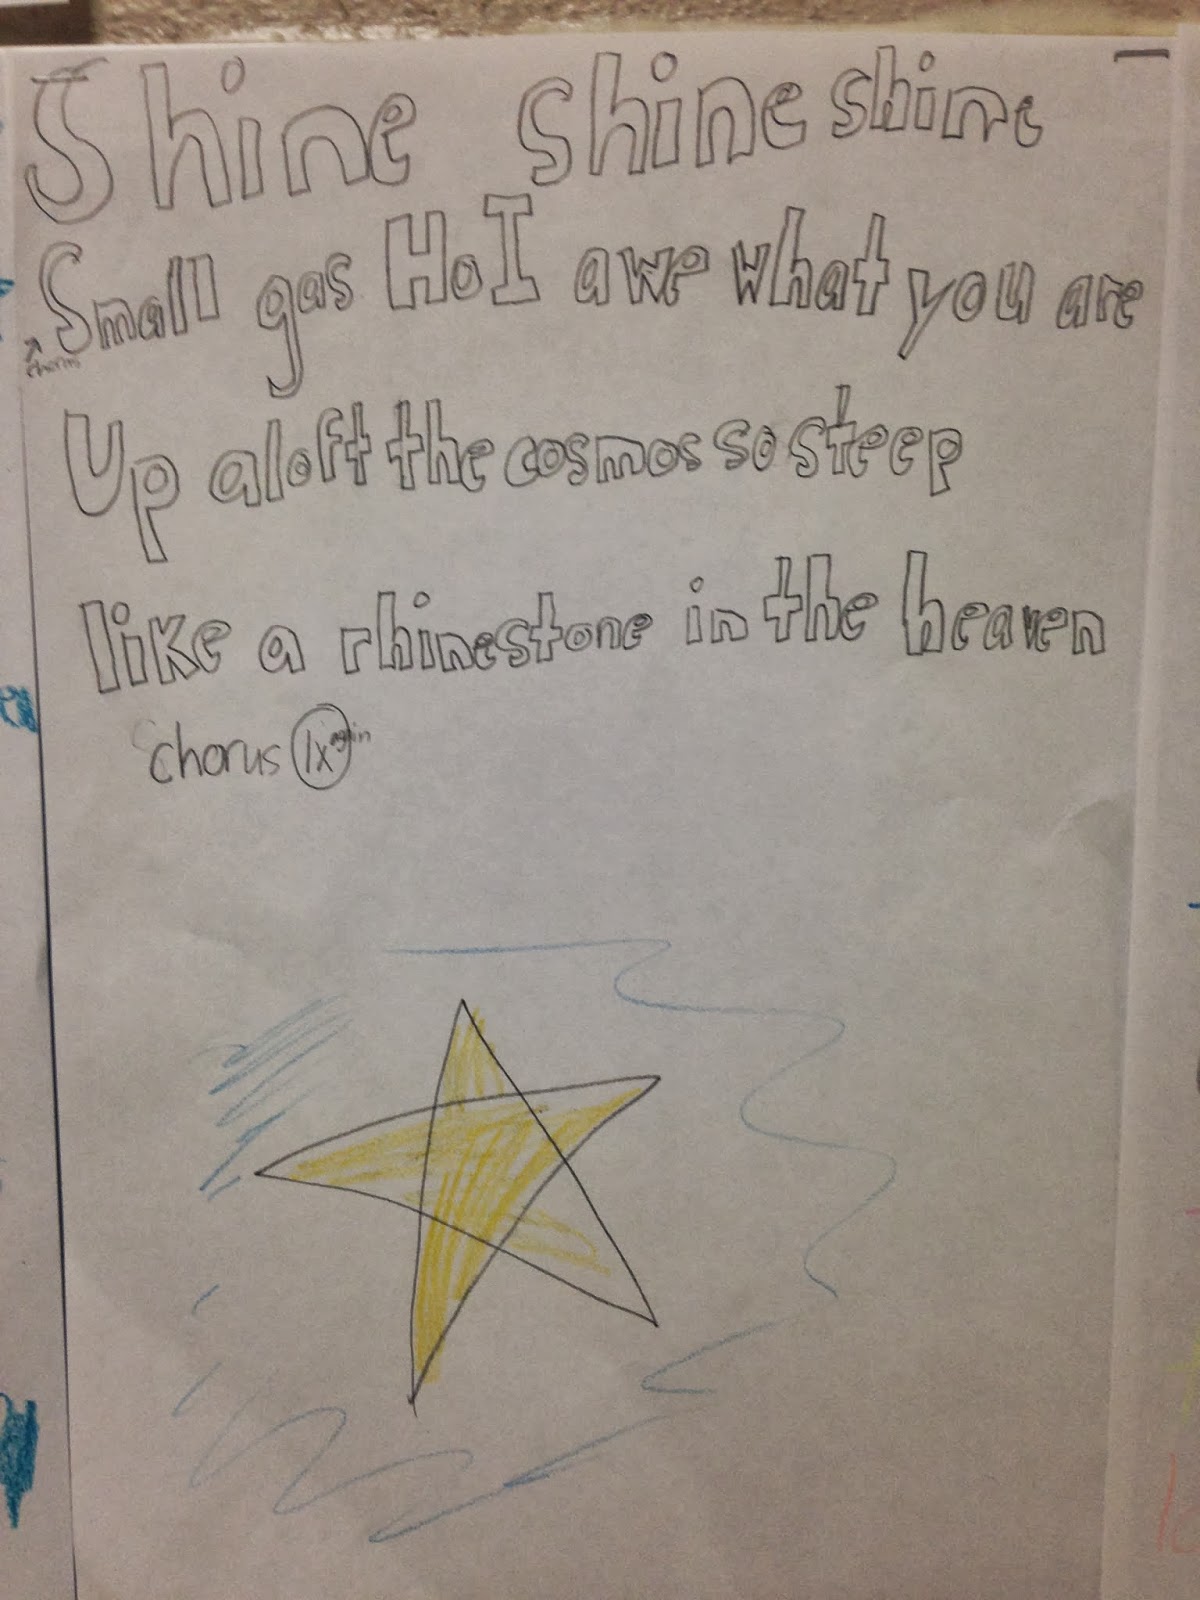 Shine shine shine
Small gas Ho I awe what you are
chorus
Up aloft the cosmos so steep
like a rhinestone in the heaven
chorus 1x again